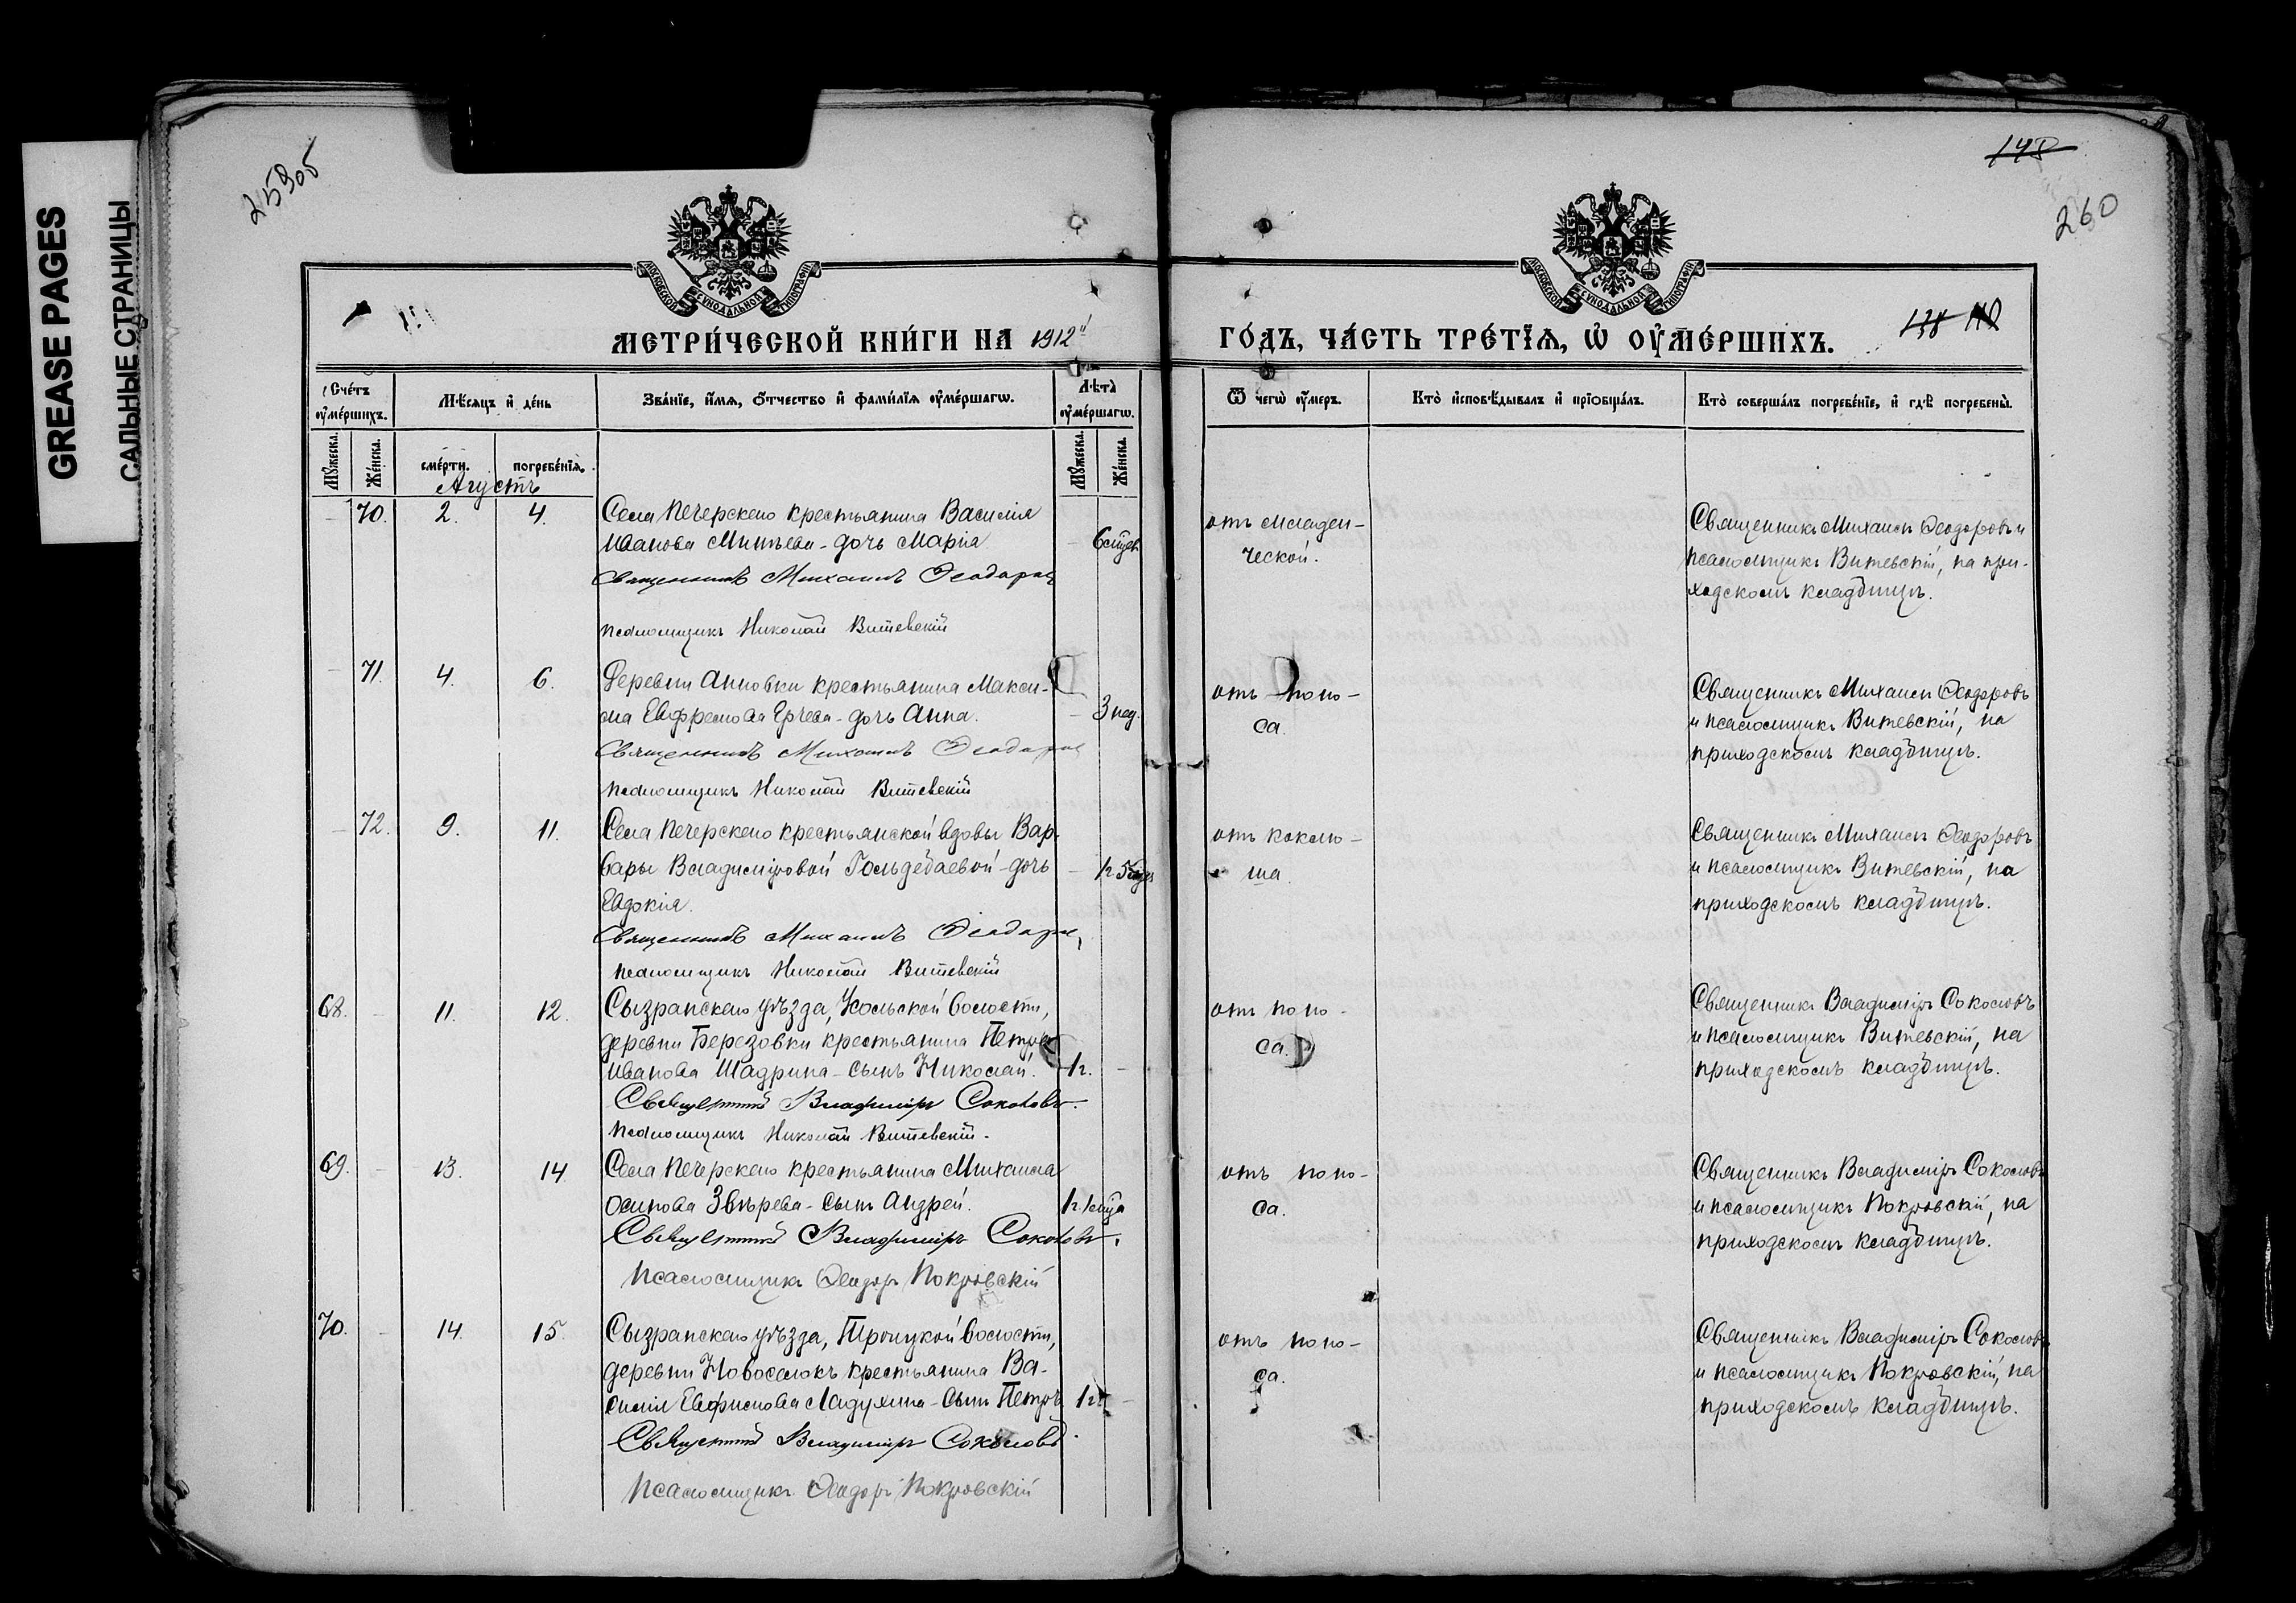 GREASE PAGES
САЛЬНЫЕ СТРАНИЦЫ
259об
148
260
МОСКОВСКОЙ СѴНОДАЛЬНОЙ ТИПОГРАФІИ
МОСКОВСКОЙ СѴНОДАЛЬНОЙ ТИПОГРАФІИ
МЕТРИ́ЧЕСКОЙ КНИ́ГИ НА 1912й
ГО́ДЪ, ЧА́СТЬ ТРЕ́ТІѦ, Ѡ҆ ОУ҆МЕ́РШИХЪ.
138
Сче́тъ оу҆ме́ршихъ.
Мѣ́сяцъ и҆ де́нь
Зва́нїе, и҆́мѧ, ѻ҆́тчество и҆ фами́лїѧ оу҆ме́ршагѡ.
Лѣ́та оу҆ме́ршагѡ.
Ѿ чегѡ̀ оу҆́меръ.
Кто̀ и҆сповѣ́дывалъ и҆ прїѡбща́лъ.
Кто̀ соверша́лъ погребе́нїе, и҆ гдѣ̀ погребены̀.
Мꙋ́жеска.
Же́нска.
сме́рти.
погребе́нїѧ.
Мꙋ́жеска.
Же́нска.
Агустъ
70. 2. 4. Села Печерскаго крестьянина Василія
Иванова Митѣева - дочь Марія 6 мѣсяц.
Священникъ Михаилъ Ѳеодоровъ
псаломщикъ Николай Витевскій
отъ младен-
ческой.
Священникъ Михаилъ Ѳеодоровъ и
псаломщикъ Витевскій, на при-
ходскомъ кладбищѣ.
71. 4. 6. Деревни Анновки крестьянина Макси-
ма Евфремова Ерчева - дочь Анна. 3 нед.
Священникъ Михаилъ Ѳеодоровъ
псаломщикъ Николай Витевскій
отъ поно-
са.
Священникъ Михаилъ Ѳеодоровъ
и псаломщикъ Витевскій, на
приходскомъ кладбищѣ.
72. 9. 11. Села Печерскаго крестьянской вдовы Вар-
вары Владиміровой Гольдебаевой - дочь 1г. 5 мѣс.
Евдокія.
Священникъ Михаилъ Ѳеодоровъ
псаломщикъ Николай Витевскій
отъ коклю-
ша.
Священникъ Михаилъ Ѳеодоровъ
и псаломщикъ Витевскій, на
приходскомъ кладбищѣ.
68. 11. 12. Сызранскаго уѣзда, Усольской волости,
деревни Березовки крестьянина Петра
Иванова Шадрина - сынъ Николай. 1г.
Священникъ Владиміръ Соколовъ.
псаломщикъ Николай Витевскій.
отъ поно-
са.
Священникъ Владиміръ Соколовъ
и псаломщикъ Витевскій, на
приходскомъ кладбищѣ.
69. 13. 14. Села Печерскаго крестьянина Михаила
Осипова Звѣрева - сынъ Андрей. 1г. 1 мѣсяц
Священникъ Владиміръ Соколовъ.
Псаломщикъ Ѳеодоръ Покровскій
отъ поно-
са.
Священникъ Владиміръ Соколовъ
и псаломщикъ Покровскій, на
приходскомъ кладбищѣ.
70. 14. 15. Сызранскаго уѣзда, Троицкой волости,
деревни Новоселокъ крестьянина Ва-
силія Евфимова Ладухина - сынъ Петръ 1г.
Священникъ Владиміръ Соколовъ
Псаломщикъ Ѳеодоръ Покровскій
отъ поно-
са.
Священникъ Владиміръ Соколовъ
и псаломщикъ Покровскій, на
приходскомъ кладбищѣ.